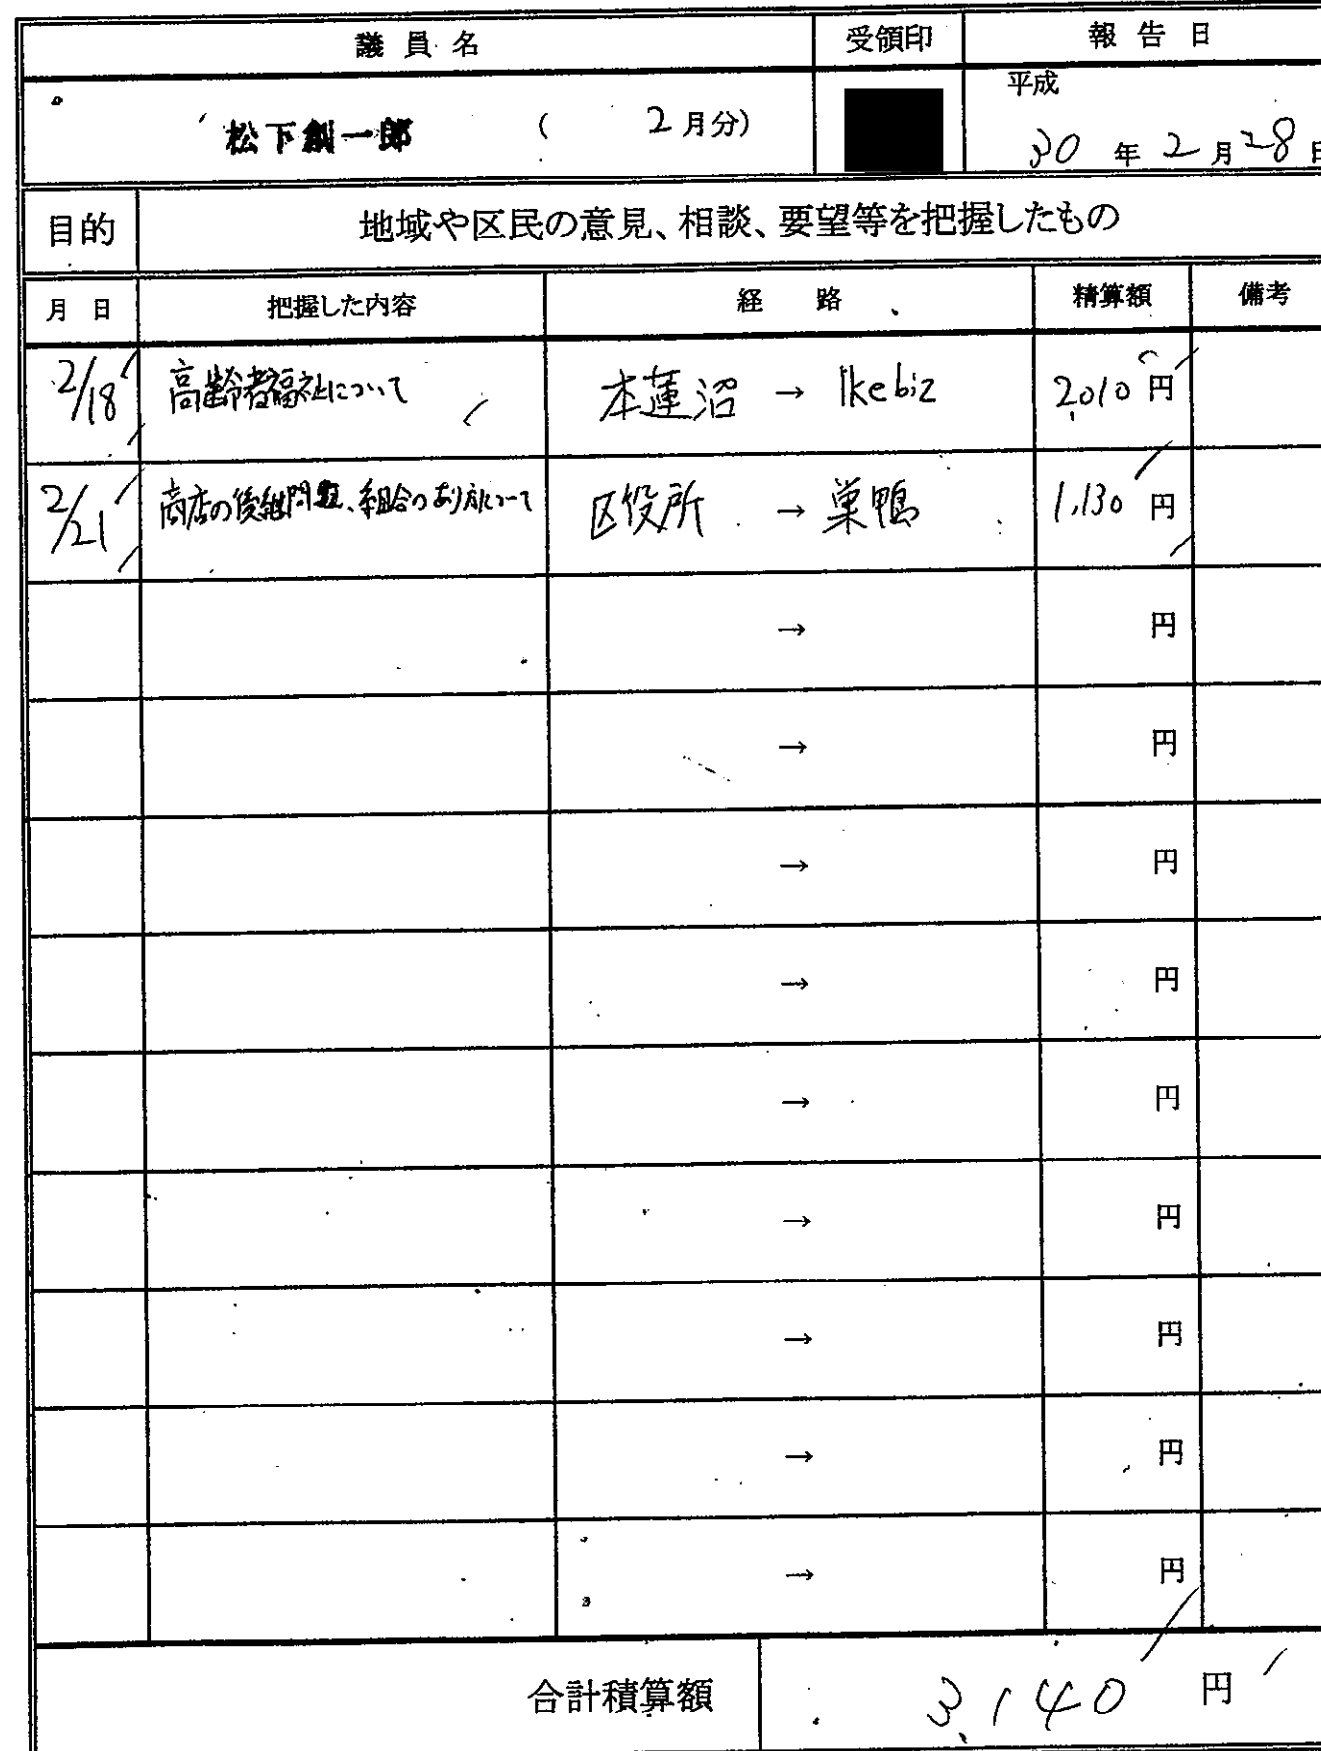 議員名 受領印 報告日
平成
松下創一郎 ( 2月分) 30年2月28日
目的 地域や区民の意見、相談、要望等を把握したもの
月日 把握した内容 経路 精算額 備考
2/18 高齢者福祉について 本蓮沼 → Ikebiz 2,010円
2/21 商店の後継問題、組合のあり方について 区役所 → 巣鴨 1,130円
→ 円
→ 円
→ 円
→ 円
→ 円
→ 円
→ 円
→ 円
→ 円
合計積算額 3,140円